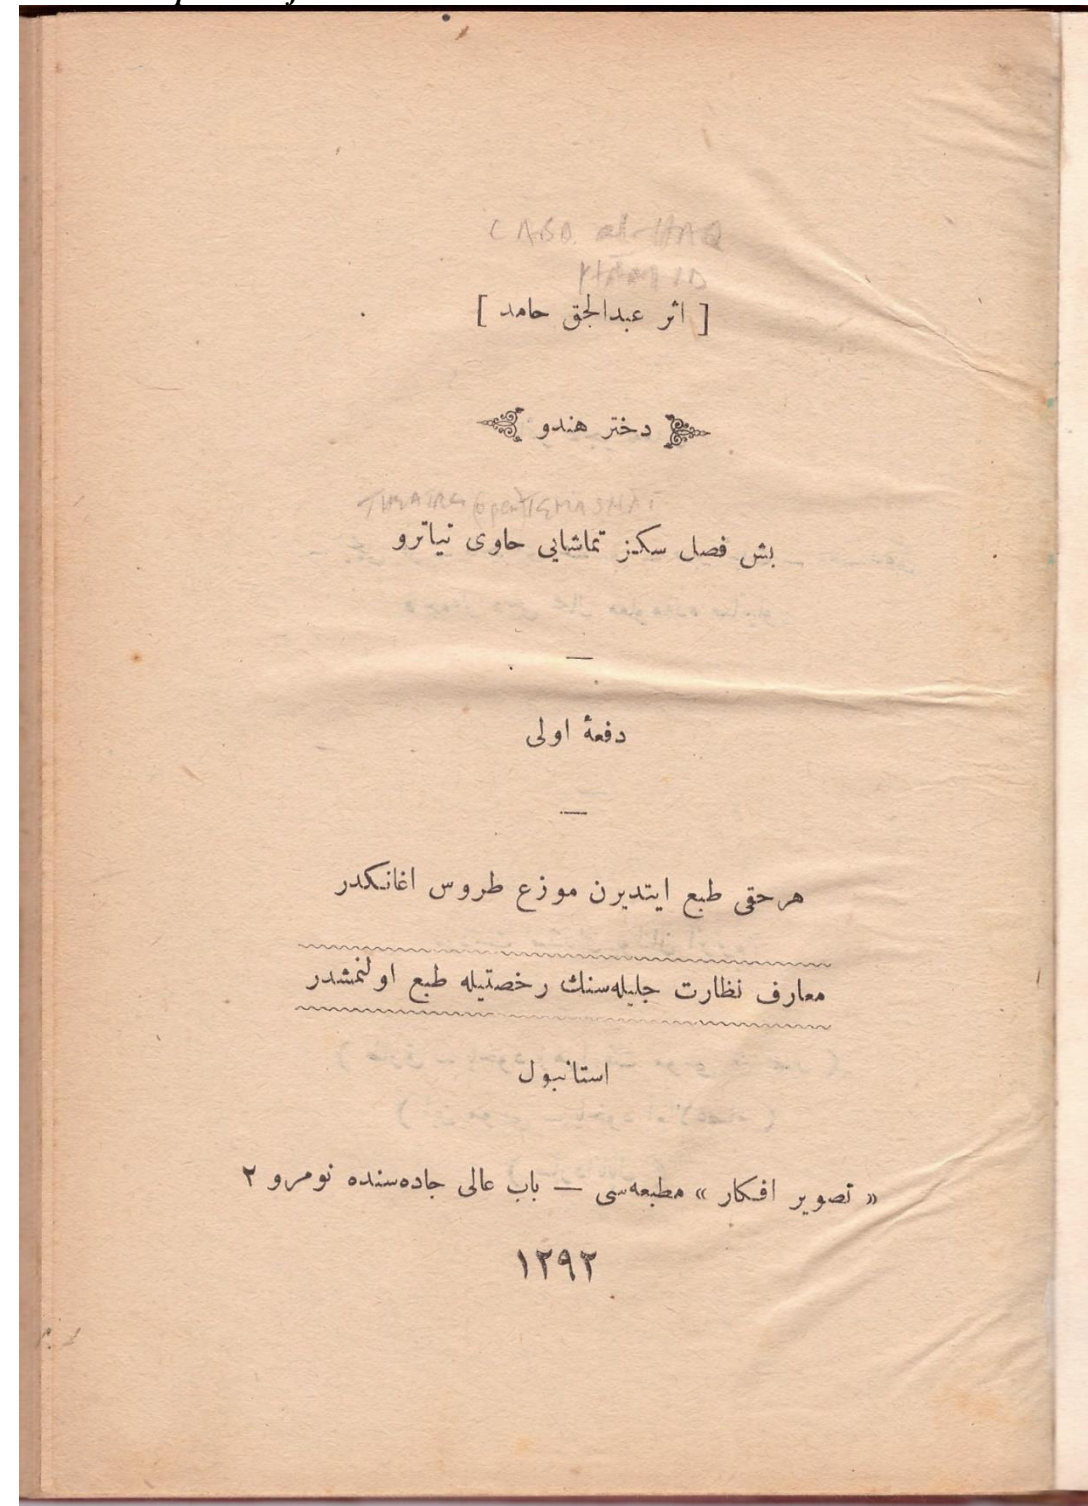 [ اثر عبدالحق حامد ]
دختر هندو
بش فصل سكز تماشايى حاوى تياترو
—
دفعۀ اولى
—
هر حقى طبع ايتديرن موزع طروس اغانكدر
معارف نظارت جليله‌سنك رخصتيله طبع اولنمشدر
استانبول
« تصوير افكار » مطبعه‌سى — باب عالى جاده‌سنده نومرو ٢
١٢٩٢